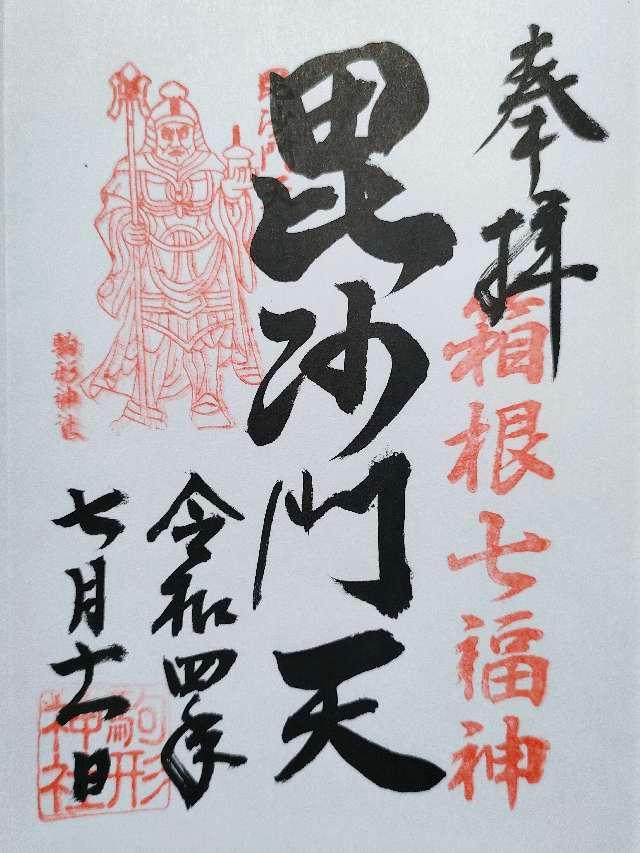 奉拝
箱根七福神
毘沙門天
毘沙門天
駒形神社
令和四年
七月十一日
駒形神社